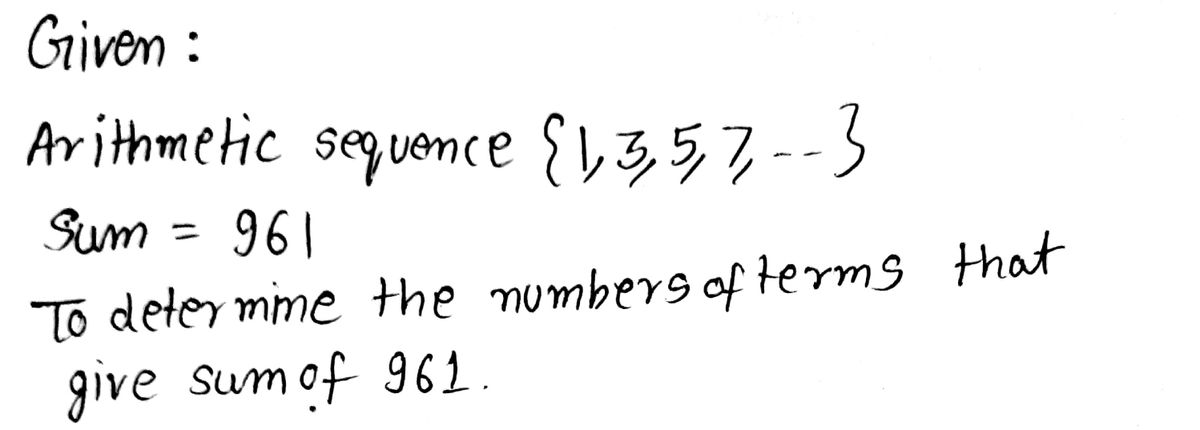 Given :
Arithmetic sequence {1, 3, 5, 7, --}
Sum = 961
To determine the numbers of terms that
give sum of 961.